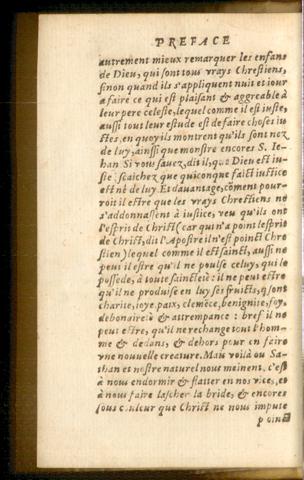 PREFACE
autrement mieux remarquer les enfans
de Dieu, qui sont tous vrays Chrestiens,
sinon quand ils s'appliquent nuit et iour
a faire ce qui est plaisant & aggreable à
leur pere celeste, lequel comme il est iuste,
aussi tout leur estude est de faire choses iu
stes, en quoy ils montrent qu'ils sont nez
de luy, ainssi que monstre encores S. Ie-
han Si vous sauez, dit il, que Dieu est iu-
ste: scaichez que quiconque faict iustice
est né de luy. Et dauantage, cõment pour-
roit il estre que les vrays Chrestiens ne
s'addonnassent à iustice, veu qu'ils ont
l'esprit de Christ (car qui n'a point l'esprit
de Christ, dit l'Apostre il n'est poinct Chre
stien) lequel comme il est sainct, aussi ne
peut il estre qu'il ne poulse celuy, qui le
possede, à toute saincteté: il ne peut estre
qu'il ne produise en luy ses fruicts, q̃ sont
charité, ioye, paix, clemẽce, benignité, foy,
debonaireté & attrempance: bref il ne
peut estre, qu'il ne rechange tout l'hom-
me & dedans, & dehors pour en faire
vne nouuelle creature. Mais voilà ou Sa-
than et nostre naturel nous meinent, c'est
à nous endormir & flatter en nos vices, et
à nous faire lascher la bride, & encores
sous couleur que Christ ne nous impute
poinct